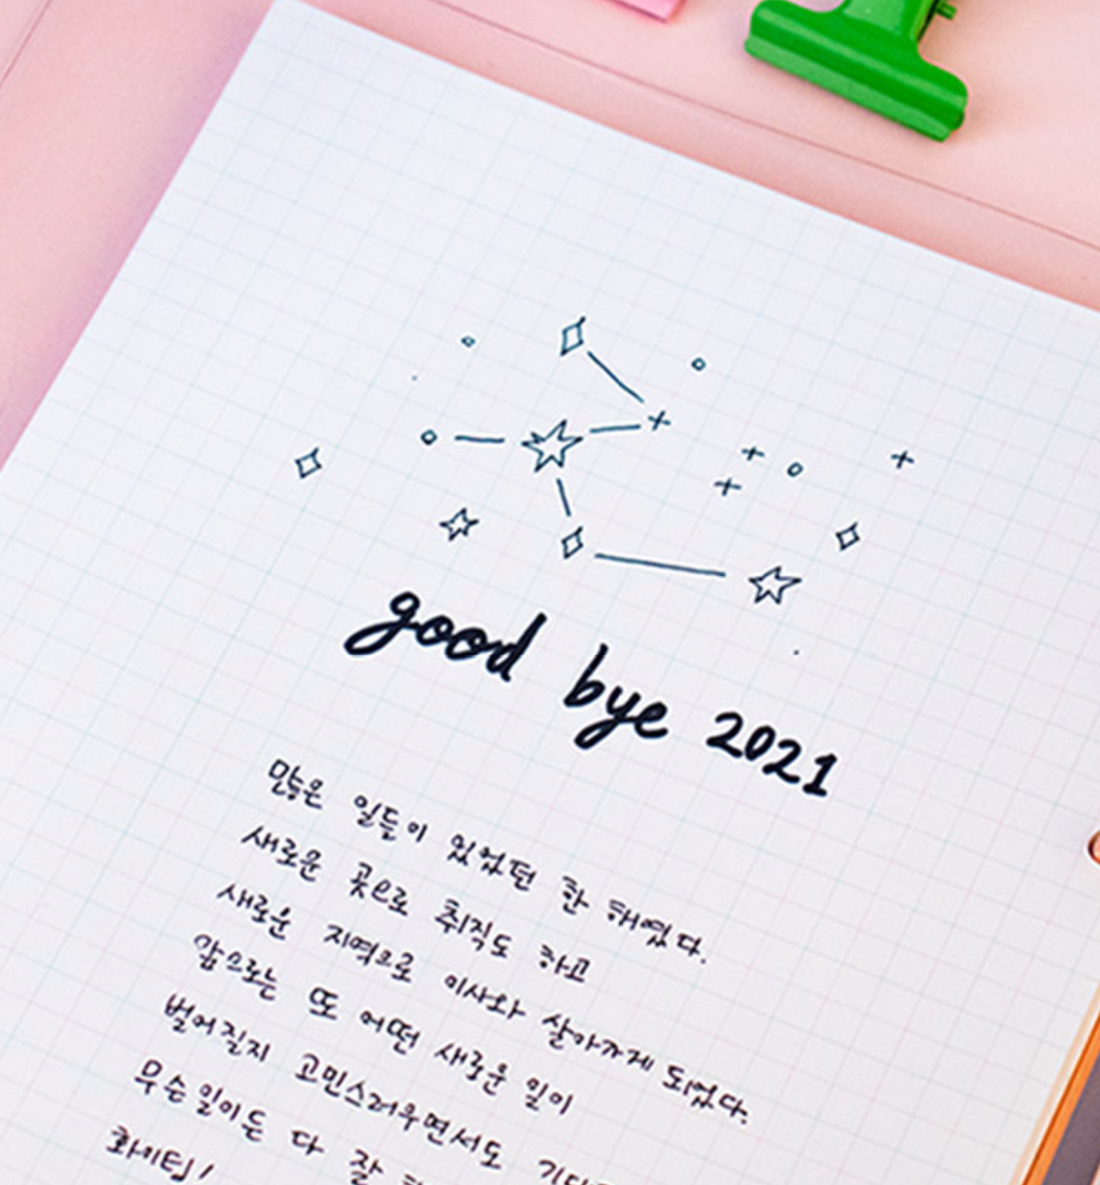 good bye 2021
많은 일들이 있었던 한 해였다.
새로운 곳으로 취직도 하고
새로운 지역으로 이사와 살아가게 되었다.
앞으로는 또 어떤 새로운 일이
벌어질지 고민스러우면서도
무슨일이든 다 잘
화이팅!